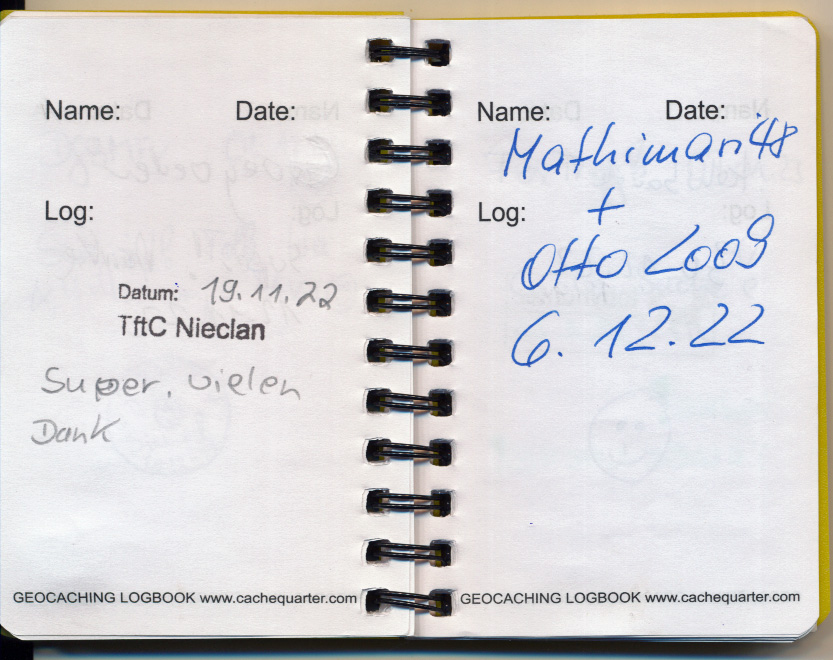 Name: Date:
Log:
Datum: 19.11.22
TftC Nieclan
Super, vielen
Dank
GEOCACHING LOGBOOK www.cachequarter.com
Name: Date:
Mathimari48
Log: +
Otto 2009
6. 12.22
GEOCACHING LOGBOOK www.cachequarter.com